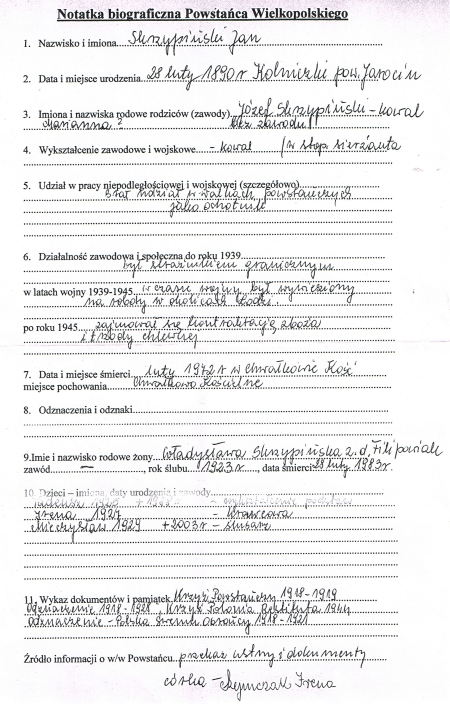 Notatka biograficzna Powstańca Wielkopolskiego
1. Nazwisko i imiona Skrzypiński Jan
2. Data i miejsce urodzenia 28 luty 1890 r Kolniczki pow. Jarocin
3. Imiona i nazwiska rodowe rodziców (zawody) Józef Skrzypiński – kowal
Marianna ? bez zawodu
4. Wykształcenie zawodowe i wojskowe – kowal / w stop sierżanta
5. Udział w pracy niepodległościowej i wojskowej (szczegółowo)
brał udział w walkach powstańczych
jako ochotnik
6. Działalność zawodowa i społeczna do roku 1939
był strażnikiem granicznym
w latach wojny 1939-1945 w czasie wojny był wywieziony
na roboty w okolicach Łodzi
po roku 1945 zajmował się kontraktacją zboża
i trzody chlewnej
7. Data i miejsce śmierci luty 1972 r w Chwałkowie Kość
miejsce pochowania Chwałkowo Kościelne
8. Odznaczenia i odznaki
9. Imie i nazwisko rodowe żony Władysława Skrzypińska z d. Filipowiak
zawód –, rok ślubu 1923 r, data śmierci 28 luty 1983 r.
10. Dzieci – imiona, daty urodzenia i zawody
Irena 1927 – krawcowa
Mieczysław 1929 + 2003 r – ślusarz
11. Wykaz dokumentów i pamiątek Krzyż Powstańczy 1918-1919
Odznaczenie 1918-1928, Krzyż Polonia Restituta 1944
Odznaczenie – Polska Swemu Obrońcy 1918-1921
Źródło informacji o w/w Powstańcu przekaz ustny i dokumenty
córka – Irena